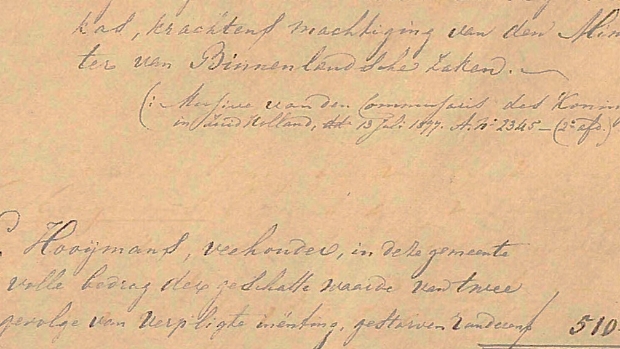 kas, krachtens machtiging van den Min
ter van Binnenlandsche Zaken. —
(: Missive van den Commissaris des Konin
in Zuid Holland, dd. 13 Juli 1877. A. No 2345 — (2e afd.)
Hooijmans, veehouder, in deze gemeente
volle bedrag der geschatte waarde van twee
gevolge van verpligte inënting, gestorven runderen 510